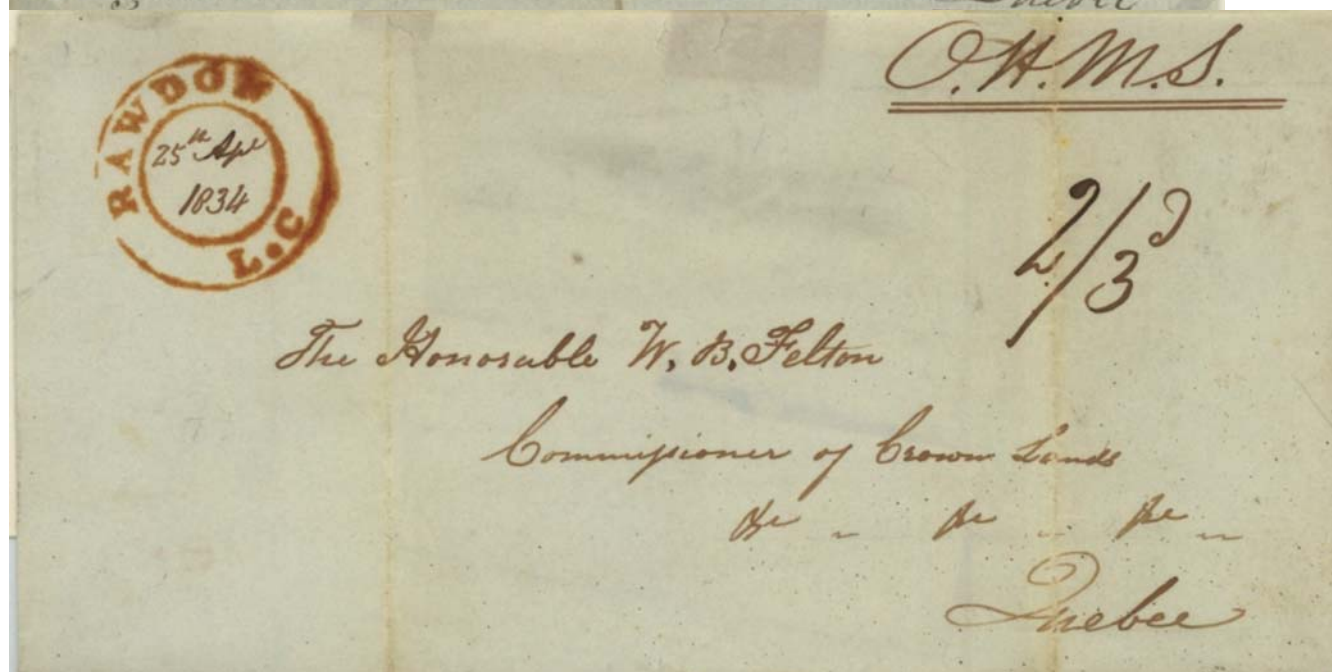 Quebec
RAWDON
25th Apl
1834
L.C
O.H.M.S.
2/3d
The Honorable W. B. Felton
Commissioner of Crown Lands
&c " &c " &c "
Quebec